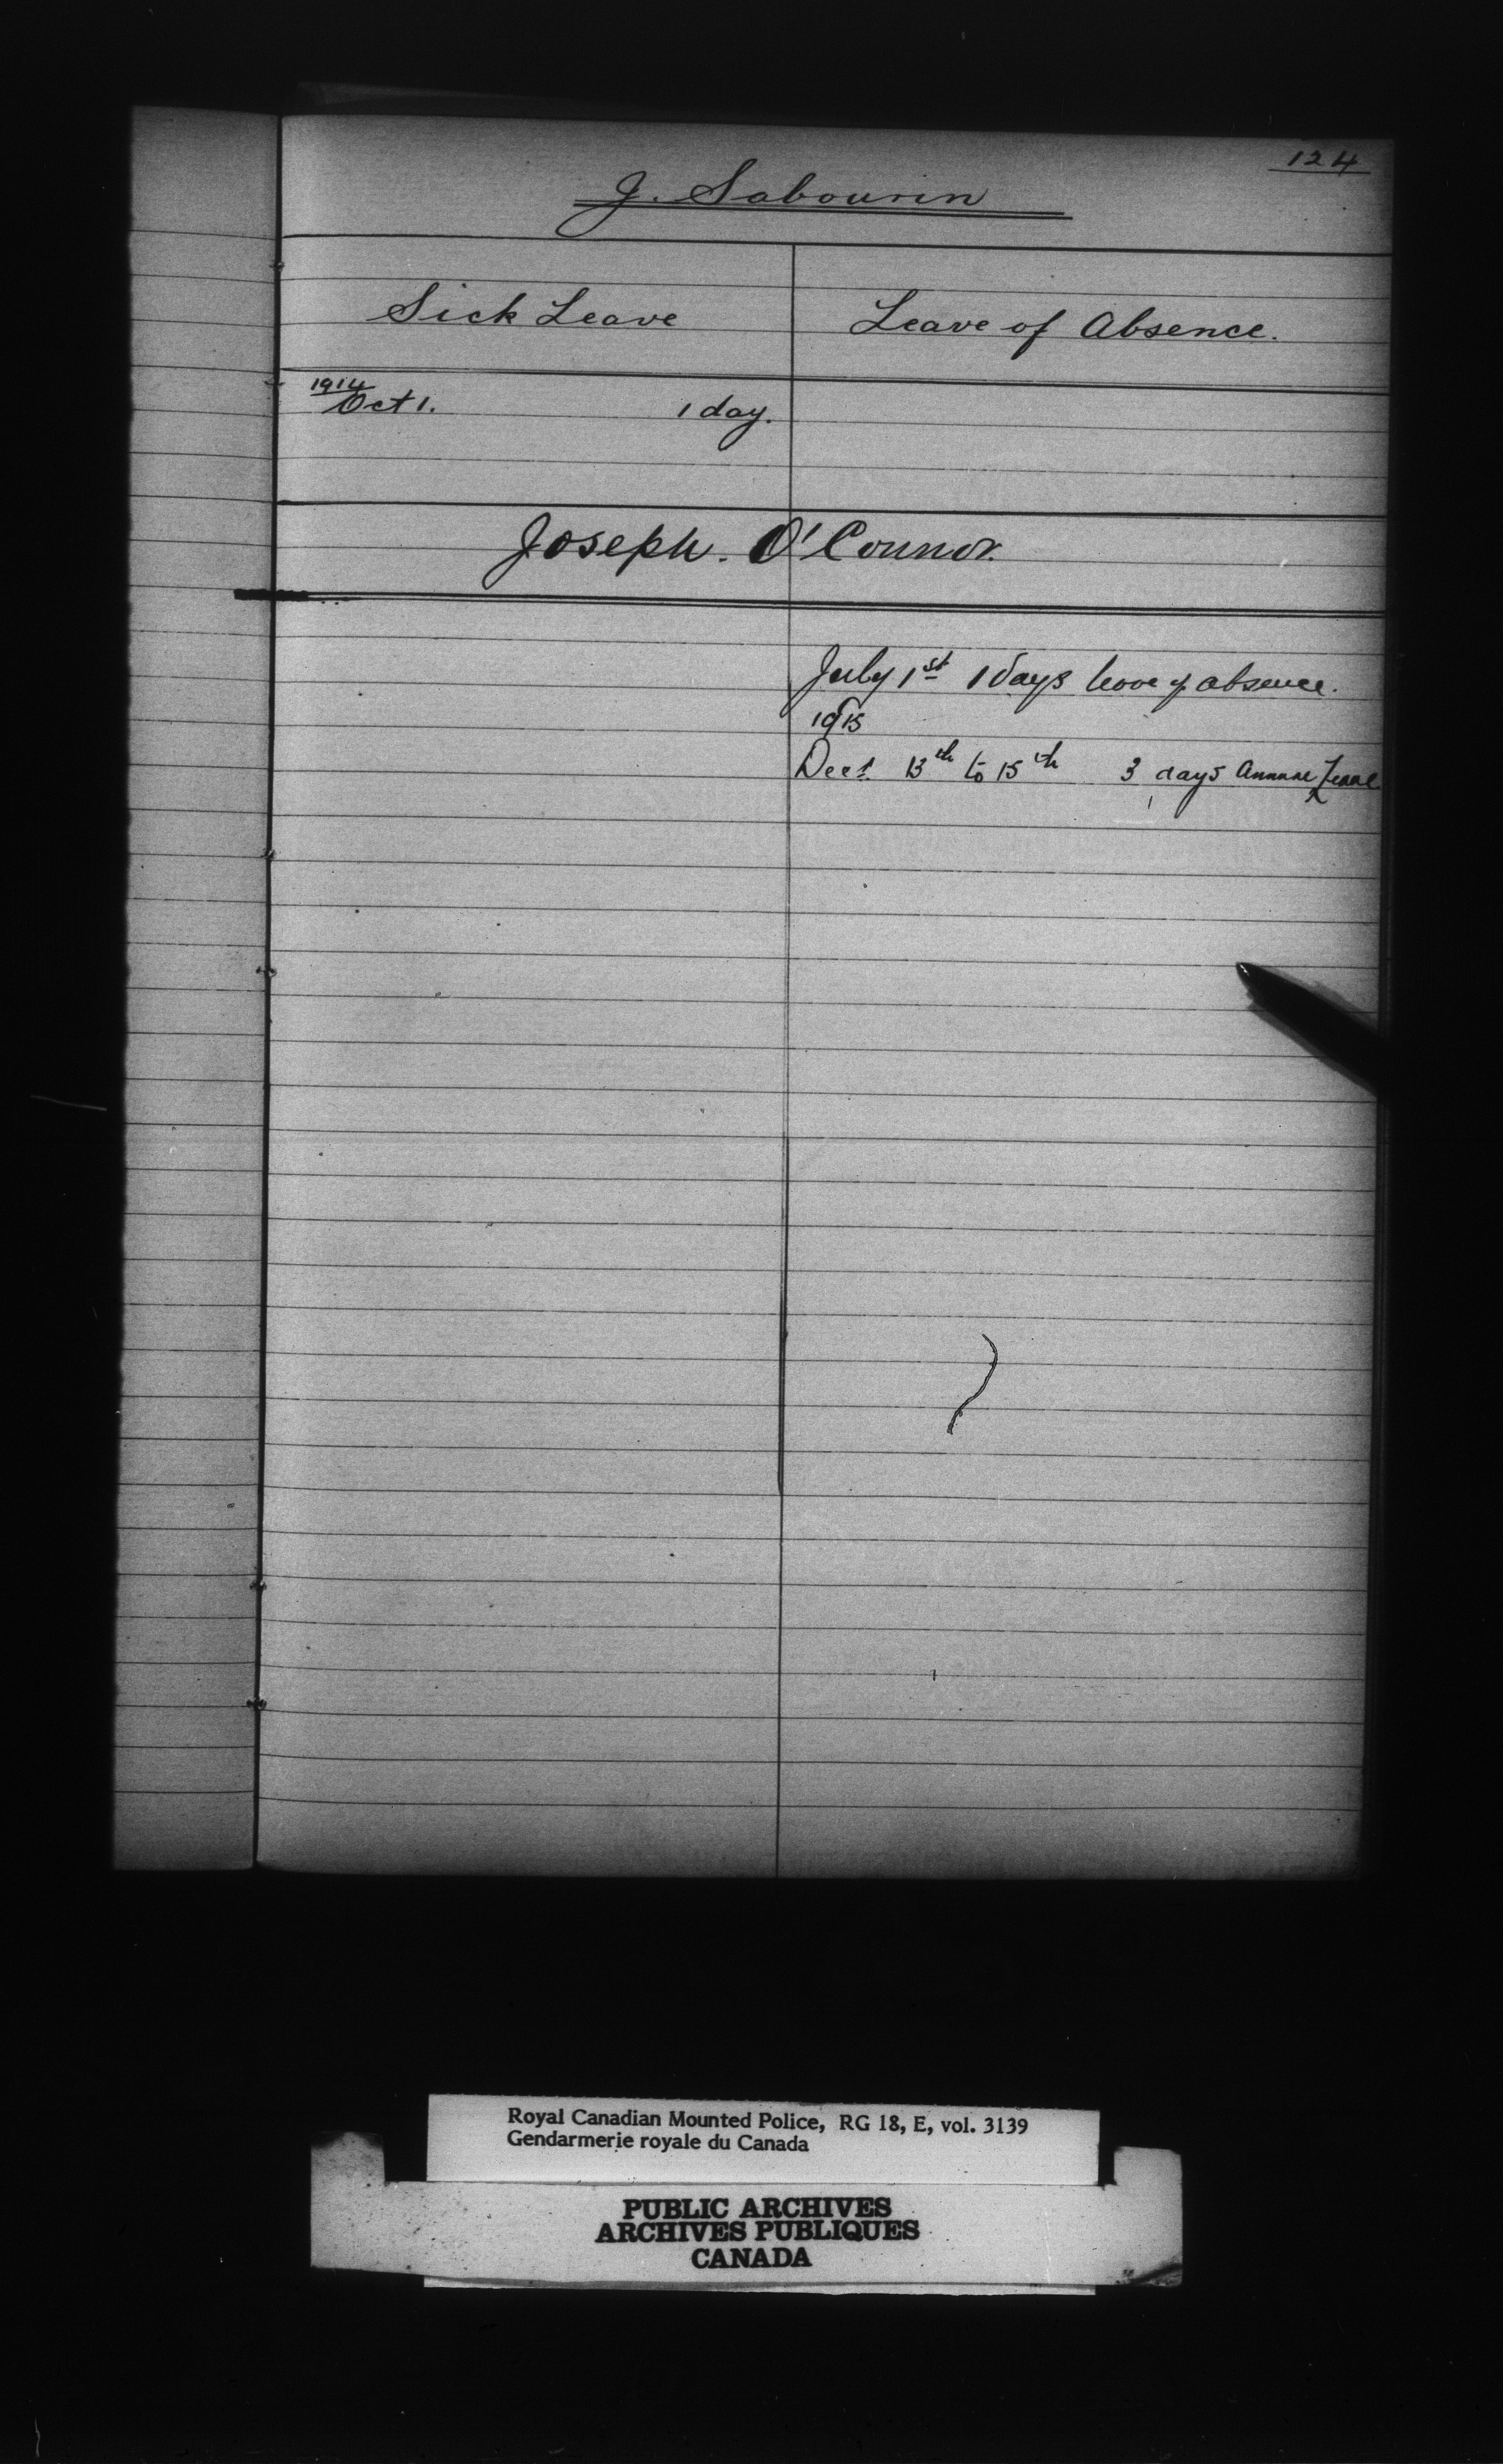 124
J. Sabourin
Sick Leave
Leave of Absence.
1914
Oct 1. 1 day.
Joseph. O'Connor.
July 1st 1 days leave of absence.
1915
Dec 13th to 15th 3 days Annual Leave
Royal Canadian Mounted Police, RG 18, E, vol. 3139
Gendarmerie royale du Canada
PUBLIC ARCHIVES
ARCHIVES PUBLIQUES
CANADA